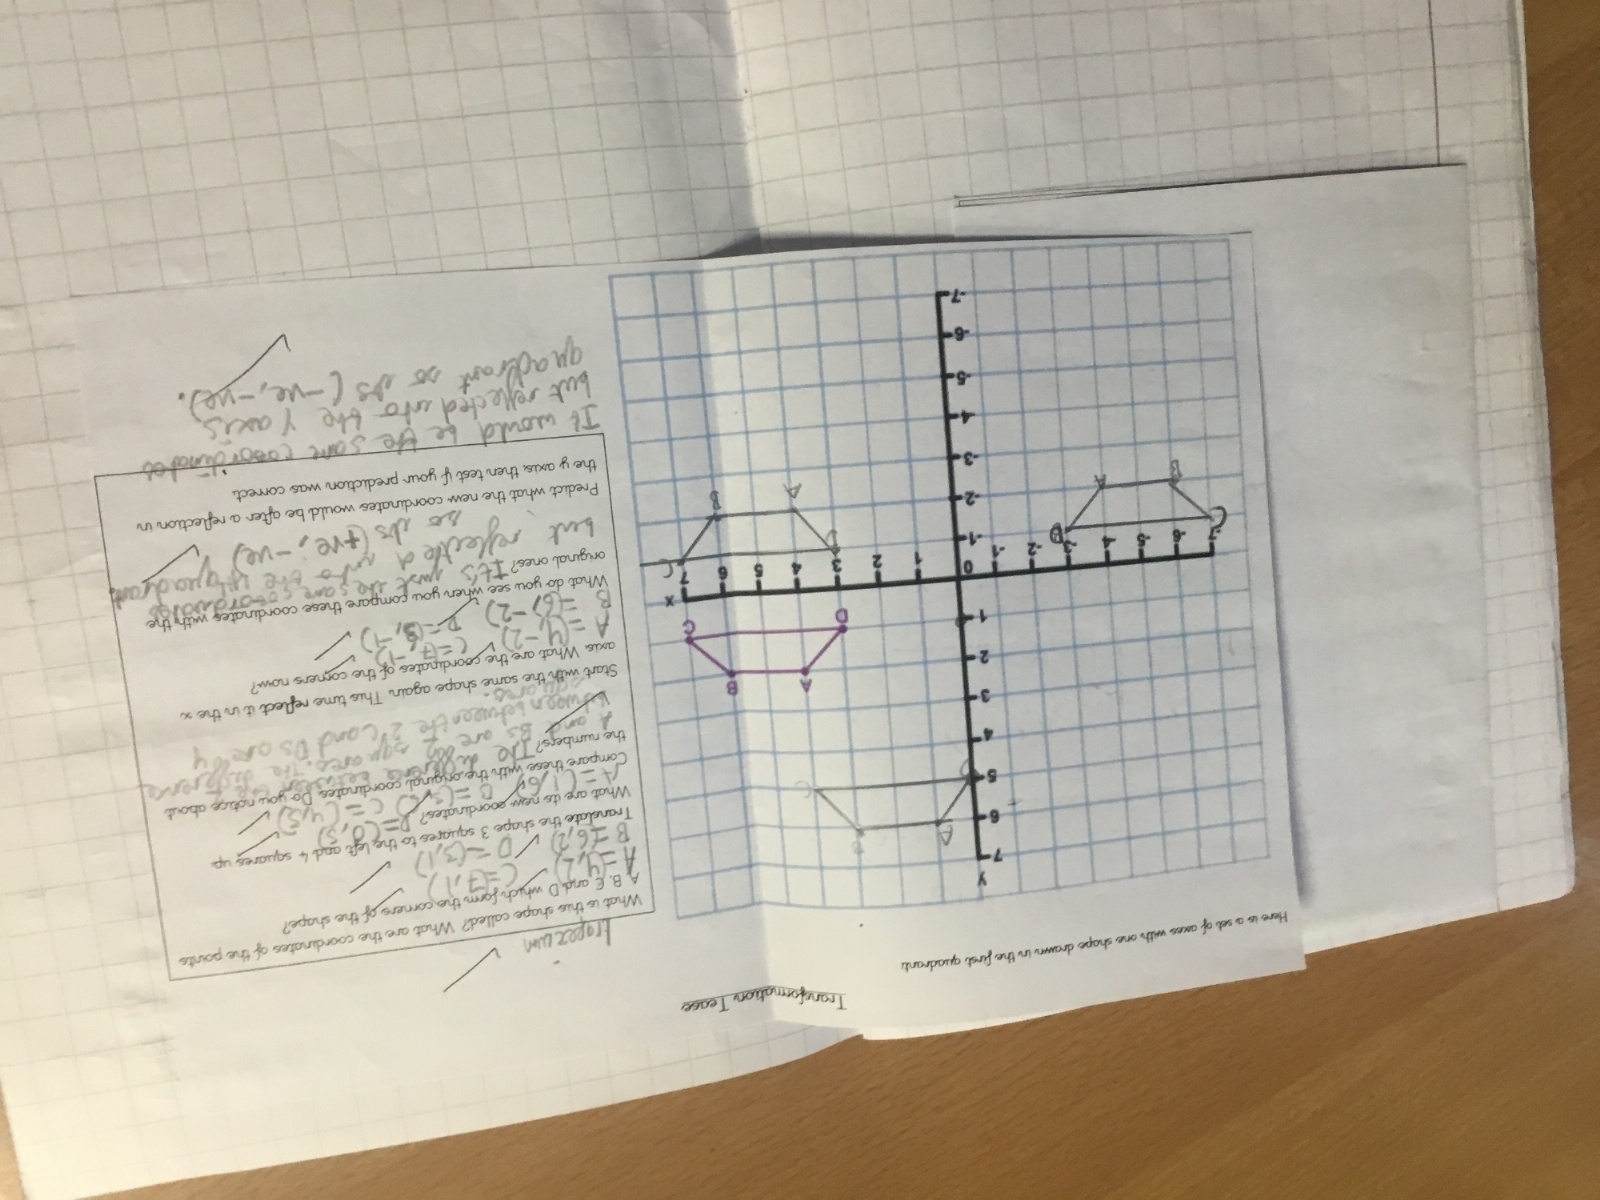 Transformation Tease
Here is a set of axes with one shape drawn in the first quadrant.
trapezium
What is this shape called? What are the coordinates of the points
A, B, C and D which form the corners of the shape?
A = (4,2) C = (7,1)
B = (6,2) D = (3,1)
Translate the shape 3 squares to the left and 4 squares up.
What are its new coordinates? D = (0,5) C = (4,5)
A = (1,6) B = (3,6)
Compare these with the original coordinates. Do you notice anything about
the numbers? The difference between the
A and Bs are squares. The difference
between between the 2 C and Ds are 4
squares.
Start with the same shape again. This time reflect it in the x
axis. What are the coordinates of the corners now?
A = (4,-2) C = (7,-1)
B = (6,-2) D = (3,-1)
What do you see when you compare these coordinates with the
original ones? It's just the same coordinates
but reflected into the quadrant
so its (+ve, -ve)
Predict what the new coordinates would be after a reflection in
the y axis, then test if your prediction was correct.
It would be the same coordinates
but reflected into the Y axis,
quadrant so its (-ve, -ve).
Y
7
6
5
4
3
2
1
0
-1
-2
-3
-4
-5
-6
-7
-7 -6 -5 -4 -3 -2 -1
1 2 3 4 5 6 7 x
A B
C
A B
D C
D C
A B
D C
A B